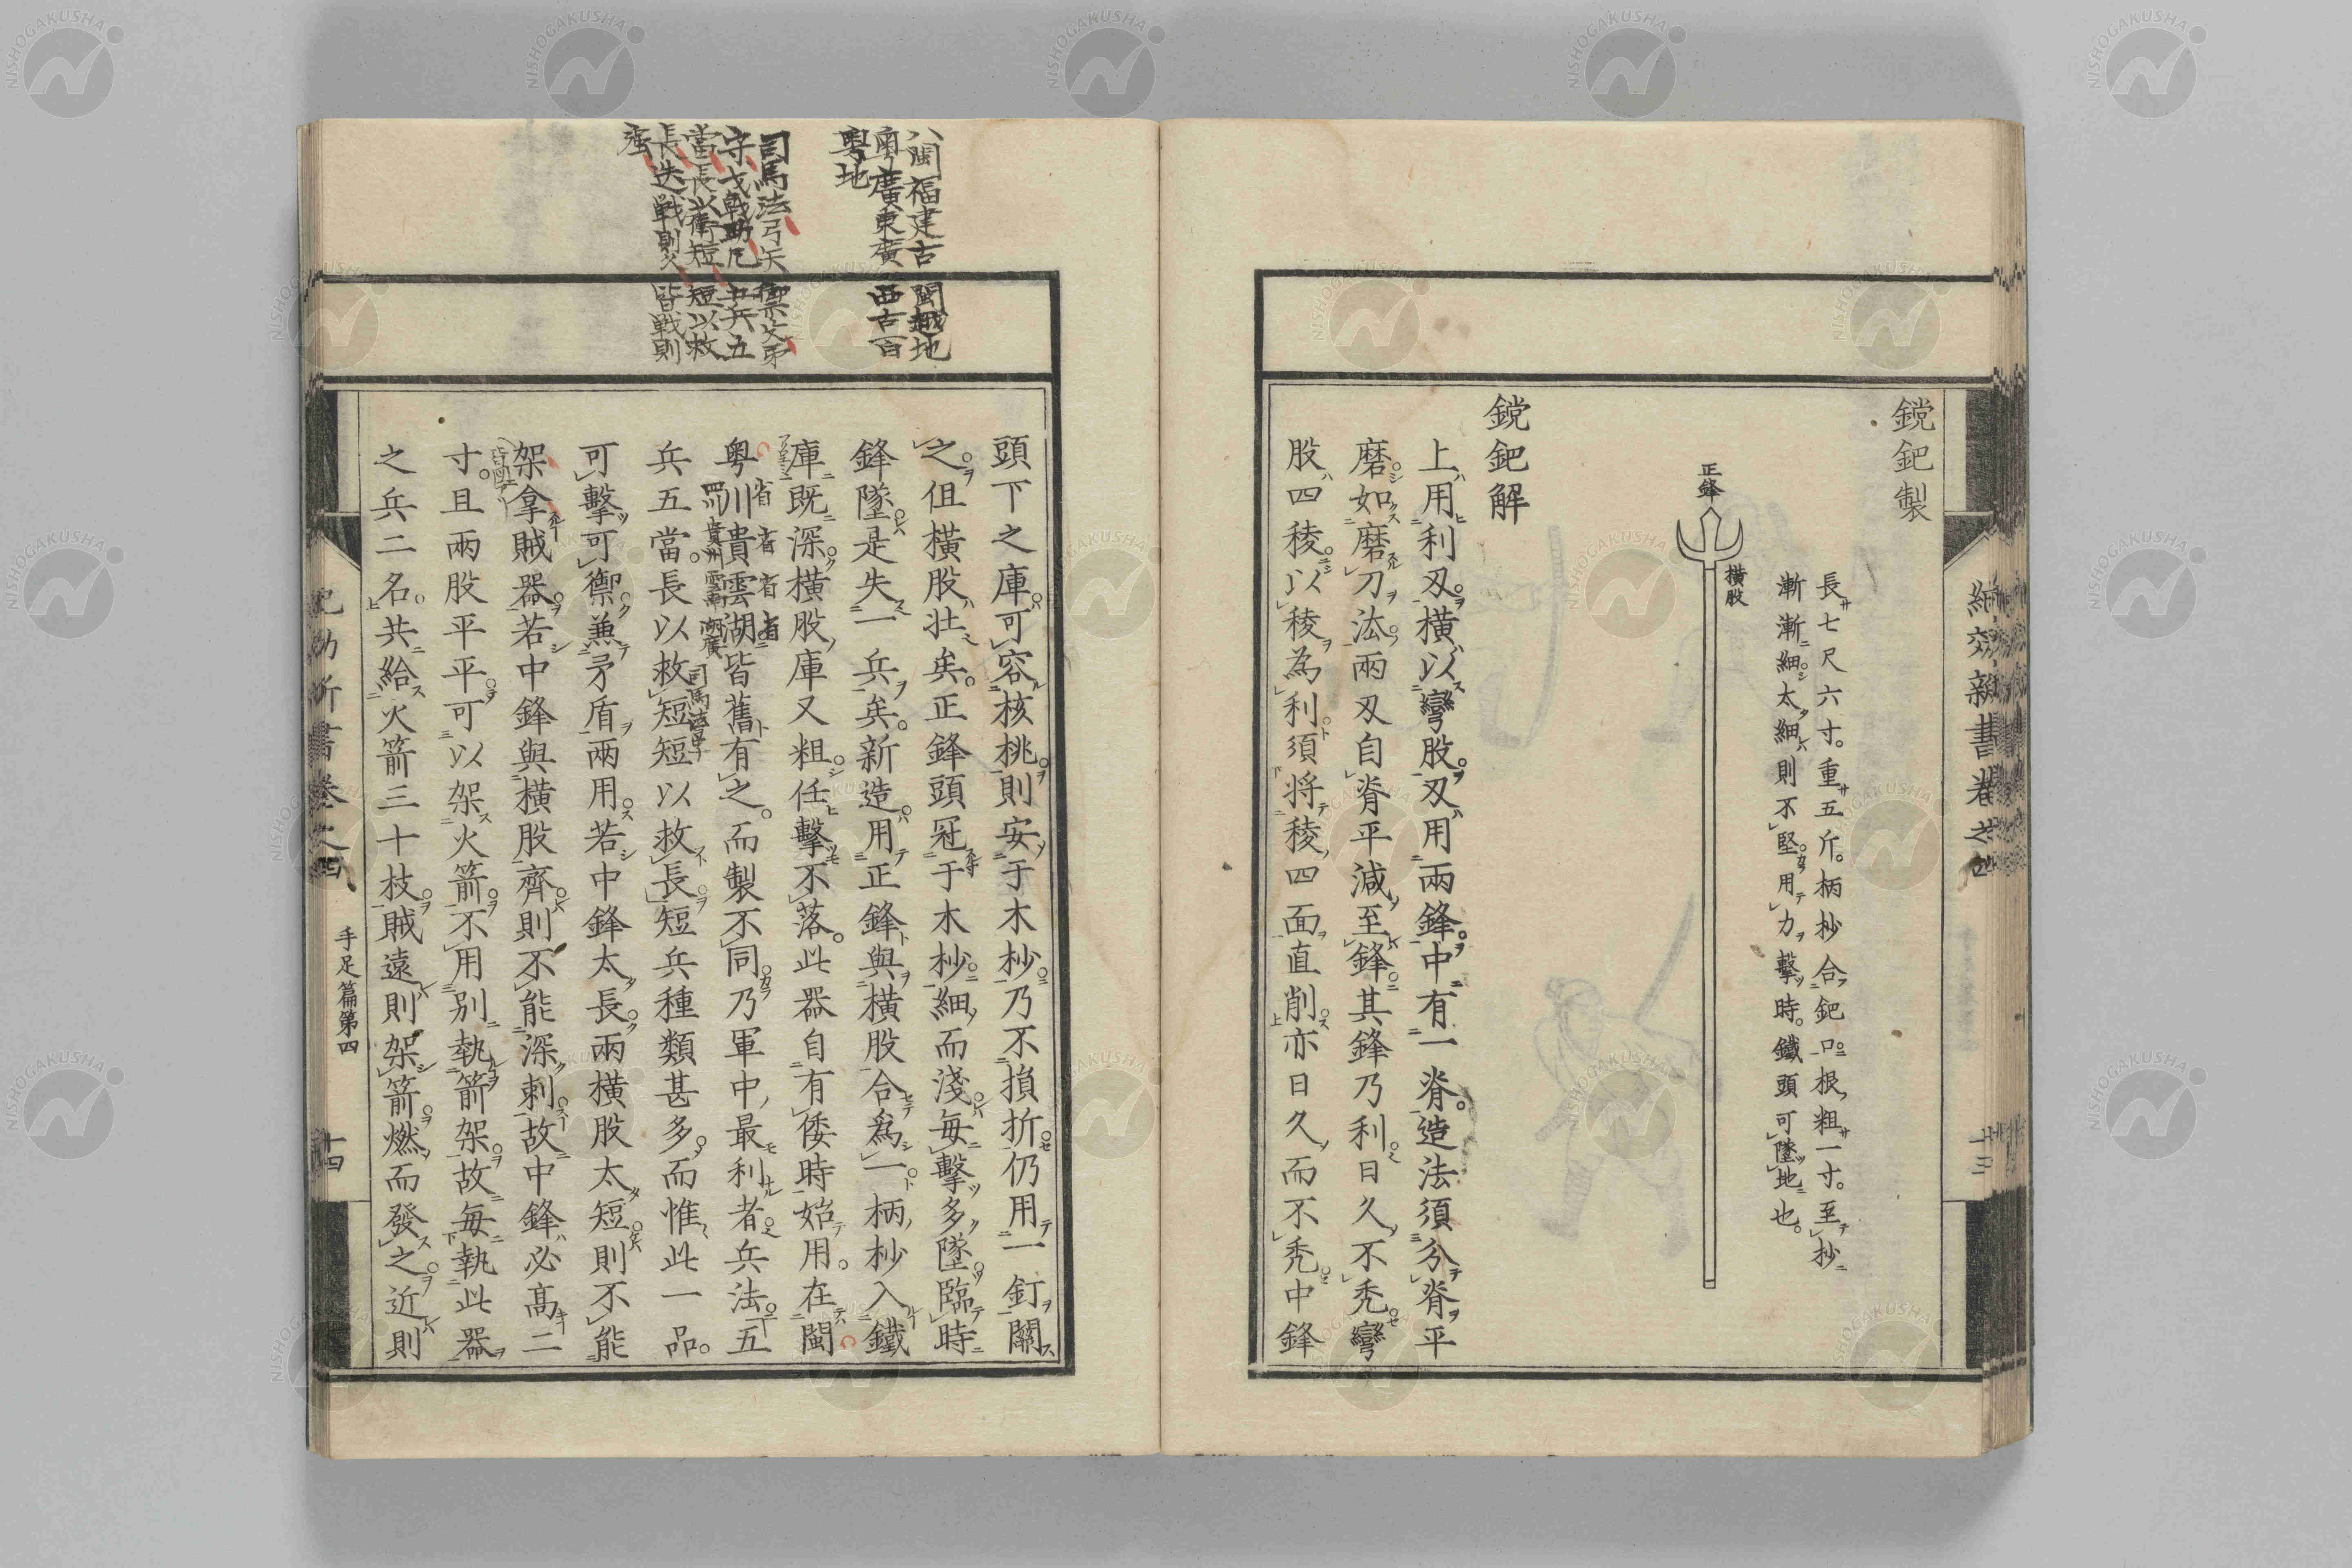 紀効新書卷之四
十三
鎲鈀製
正鋒
橫股
長七尺六寸。重五斤。柄杪合鈀口根粗一寸。至杪
漸漸細太細則不堅。用力擊時。鐵頭可墜地也。
鎲鈀解
上用利刃橫以彎股。刃用兩鋒。中有一脊。造法須分脊平
磨如磨刀法。兩刃自脊平減至鋒。其鋒乃利日久不禿彎
股四稜以稜為利須將稜四面直削亦日久而不禿中鋒
頭下之庫可容核桃則安于木杪乃不損折仍用一釘關
之。但橫股壯矣。正鋒頭冠于木杪細而淺每擊多墜臨時
鋒墜是失一兵矣。新造用正鋒與橫股合為一柄杪入鐵
庫既深橫股庫又粗任擊不落。此器自有倭時始用。在閩
粵川貴雲湖皆舊有之。而製不同乃軍中最利者兵法五
兵五當。長以救短短以救長短兵種類甚多而惟此一品。
可擊可禦兼矛盾兩用。若中鋒太長兩橫股太短則不能
架拿賊器若中鋒與橫股齊則不能深刺故中鋒必高二
寸。且兩股平平可以架火箭不用別執箭架故每執此器
之兵二名。共給火箭三十枝賊遠則架箭燃而發之近則
手足篇第四
十四
八閩福建古閩越地
粵廣東廣西古百
粵地
司馬法弓矢禦殳矛
守戈戟助凡五兵五
當長以衛短短以救
長迭戰則久皆戰則
強
省
省
省
省
四川
貴州
雲南
湖廣
司馬法
NISHOGAKUSHA